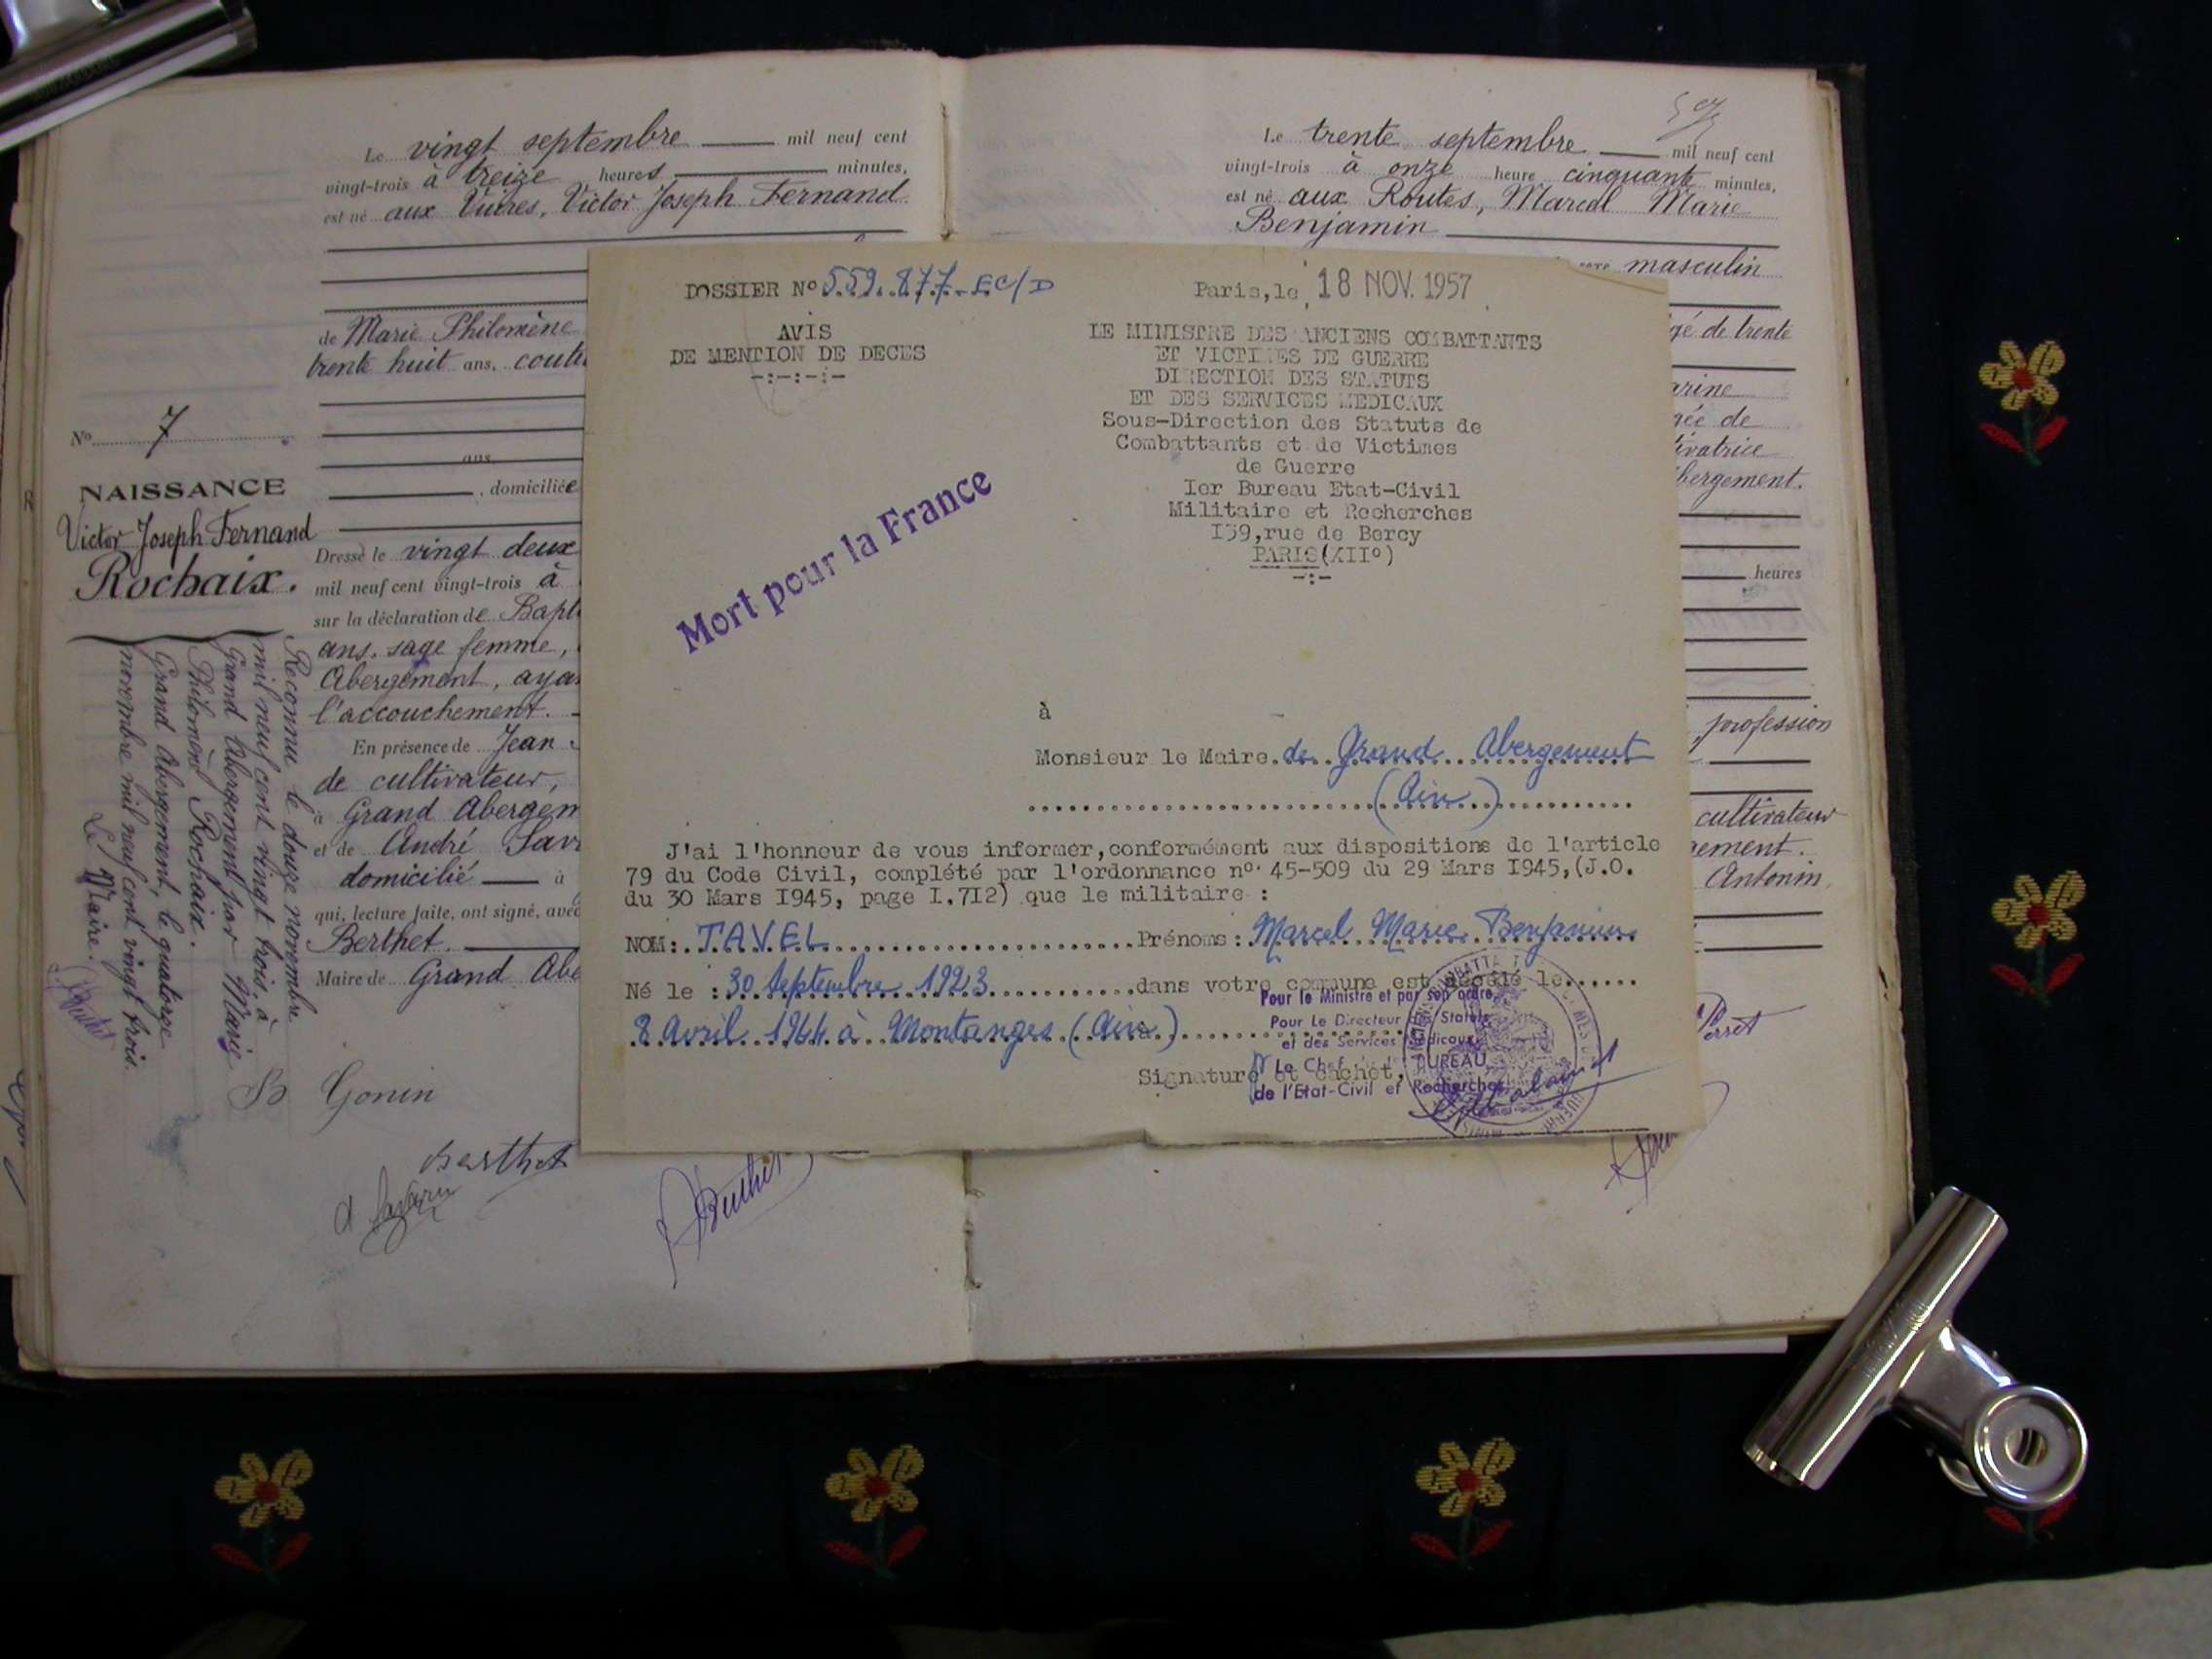 Le vingt septembre mil neuf cent
vingt-trois à treize heures minutes,
est né aux Vuires, Victor Joseph Fernand
de Marie Philomène
trente huit ans, coutu
ans
, domiciliée
Dressé le vingt deux
mil neuf cent vingt-trois à
sur la déclaration de Bapt
ans, sage femme,
Abergement, aya
l'accouchement.
En présence de Jean
de cultivateur,
à Grand Abergem
et de André Sav
domicilié à
qui, lecture faite, ont signé, avec
Berthet.
Maire de Grand Abe
Gonin
Berthet
No 7
NAISSANCE
Victor Joseph Fernand
Rochaix.
Reconnu le douze novembre
mil neuf cent vingt trois, à
Grand Abergement par Marie
Philomène Rochaix.
Grand Abergement, le quatorze
novembre mil neuf cent vingt trois.
Le Maire.
DOSSIER No 559.877 EC/D
AVIS
DE MENTION DE DECES
-:-:-:-
Mort pour la France
Paris, le 18 NOV. 1957
LE MINISTRE DES ANCIENS COMBATTANTS
ET VICTIMES DE GUERRE
DIRECTION DES STATUTS
ET DES SERVICES MEDICAUX
Sous-Direction des Statuts de
Combattants et de Victimes
de Guerre
Ier Bureau Etat-Civil
Militaire et Recherches
I39, rue de Bercy
PARIS (XIIo)
-:-
à
Monsieur le Maire de Grand Abergement
(Ain)
J'ai l'honneur de vous informer, conformément aux dispositions de l'article
79 du Code Civil, complété par l'ordonnance no 45-509 du 29 Mars I945, (J.O.
du 30 Mars I945, page I.7I2) que le militaire :
NOM: TAVEL Prénoms : Marcel Marie Benjamin
Né le : 30 Septembre 1923 dans votre commune est décédé le
8 Avril 1944 à Montanges (Ain)
Signature et cachet,
Pour le Ministre et par son ordre,
Pour Le Directeur des Statuts
et des Services Médicaux
Le Chef du BUREAU
de l'Etat-Civil et Recherches
Le trente septembre mil neuf cent
vingt-trois à onze heure cinquante minutes,
est né aux Routes, Marcel Marie
Benjamin
masculin
gé de trente
arine
gée de
tivatrice
bergement.
heures
, profession
cultivateur
ement.
Antonin